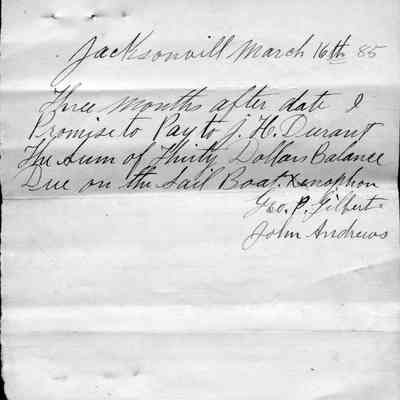 Jacksonvill March 16th 85
Three Months after date I
Promise to Pay to J. H. Durant
The Sum of Thirty Dollars Balance
Due on the Sail Boat. Xenophon
Geo. P. Gilbert
John Andrews